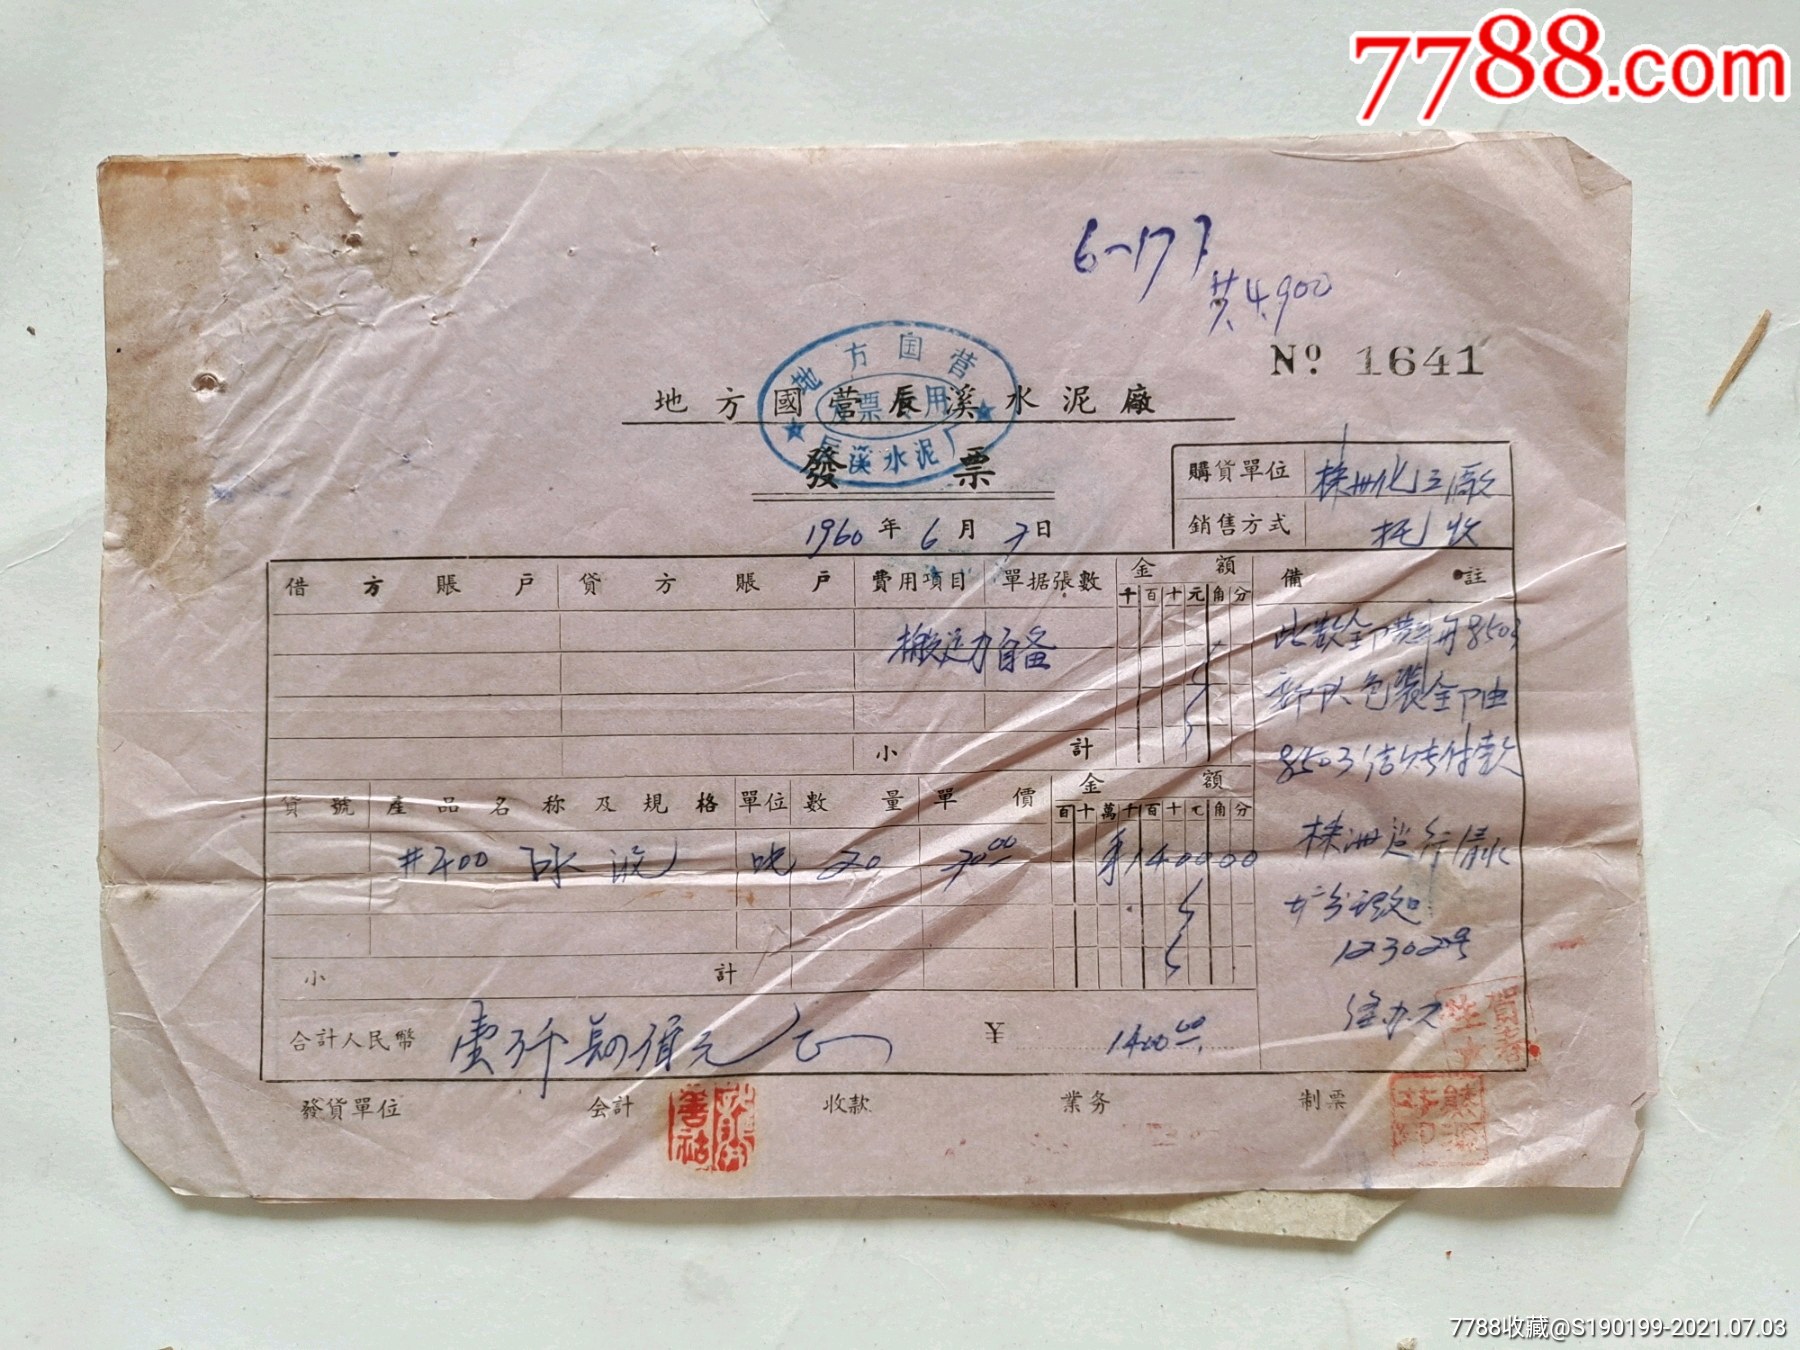 7788.com
6-17
共4,900
№ 1641
地方國營辰溪水泥廠
地方国营
發票
1960年6月7日
購貨單位 株州化工廠
銷售方式 托收
借方賬戶 貸方賬戶 費用項目 單据張數 金額 備註
千百十元角分
搬运力自备
部队包装全部由
8503
小計
貨號 產品名称及規格 單位 數量 單價 金額
百十萬千百十元角分
#400 水泥 吨 20 70.00 ¥140000
株洲
12302号
小計
合計人民幣 壹仟肆佰元正 ¥ 1400.00
發貨單位 会計 收款 業务 制票
7788收藏@S190199-2021.07.03